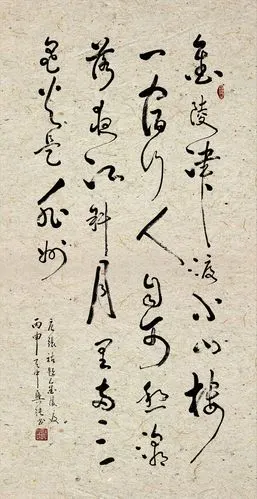 金陵津渡小山樓
一宿行人自可愁潮
落夜江斜月里兩三
星火是瓜州
唐張祜題金陵渡
丙申